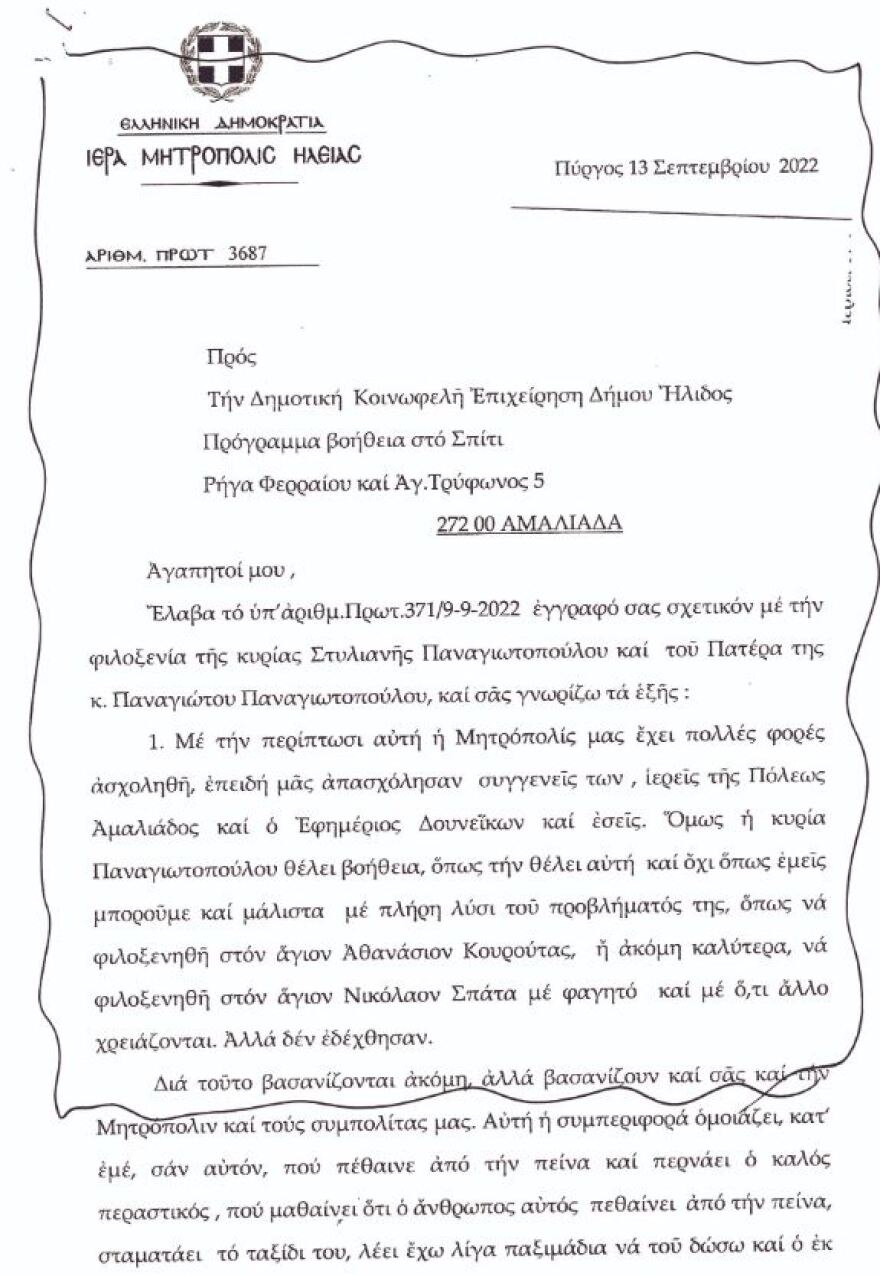 ΕΛΛΗΝΙΚΗ ΔΗΜΟΚΡΑΤΙΑ
ΙΕΡΑ ΜΗΤΡΟΠΟΛΙC ΗΛΕΙΑC
Πύργος 13 Σεπτεμβρίου 2022
ΑΡΙΘΜ. ΠΡΩΤ 3687
Πρός
Τήν Δημοτική Κοινωφελῆ Ἐπιχείρηση Δήμου Ἤλιδος
Πρόγραμμα βοήθεια στό Σπίτι
Ρήγα Φερραίου καί Ἁγ.Τρύφωνος 5
272 00 ΑΜΑΛΙΑΔΑ
Ἀγαπητοί μου ,
Ἔλαβα τό ὑπ’ἀριθμ.Πρωτ.371/9-9-2022 ἐγγραφό σας σχετικόν μέ τήν
φιλοξενία τῆς κυρίας Στυλιανῆς Παναγιωτοπούλου καί τοῦ Πατέρα της
κ. Παναγιώτου Παναγιωτοπούλου, καί σᾶς γνωρίζω τά ἑξῆς :
1. Μέ τήν περίπτωσι αὐτή ἡ Μητρόπολίς μας ἔχει πολλές φορές
ἀσχοληθῆ, ἐπειδή μᾶς ἀπασχόλησαν συγγενεῖς των , ἱερεῖς τῆς Πόλεως
Ἀμαλιάδος καί ὁ Ἐφημέριος Δουνεΐκων καί ἐσεῖς. Ὅμως ἡ κυρία
Παναγιωτοπούλου θέλει βοήθεια, ὅπως τήν θέλει αὐτή καί ὄχι ὅπως ἐμεῖς
μποροῦμε καί μάλιστα μέ πλήρη λύσι τοῦ προβλήματός της, ὅπως νά
φιλοξενηθῆ στόν ἅγιον Ἀθανάσιον Κουρούτας, ἤ ἀκόμη καλύτερα, νά
φιλοξενηθῆ στόν ἅγιον Νικόλαον Σπάτα μέ φαγητό καί μέ ὅ,τι ἄλλο
χρειάζονται. Ἀλλά δέν ἐδέχθησαν.
Διά τοῦτο βασανίζονται ἀκόμη, ἀλλά βασανίζουν καί σᾶς καί τήν
Μητρόπολιν καί τούς συμπολίτας μας. Αὐτή ἡ συμπεριφορά ὁμοιάζει, κατ’
ἐμέ, σάν αὐτόν, πού πέθαινε ἀπό τήν πείνα καί περνάει ὁ καλός
περαστικός , πού μαθαίνει ὅτι ὁ ἄνθρωπος αὐτός πεθαίνει ἀπό τήν πείνα,
σταματάει τό ταξίδι του, λέει ἔχω λίγα παξιμάδια νά τοῦ δώσω καί ὁ ἐκ